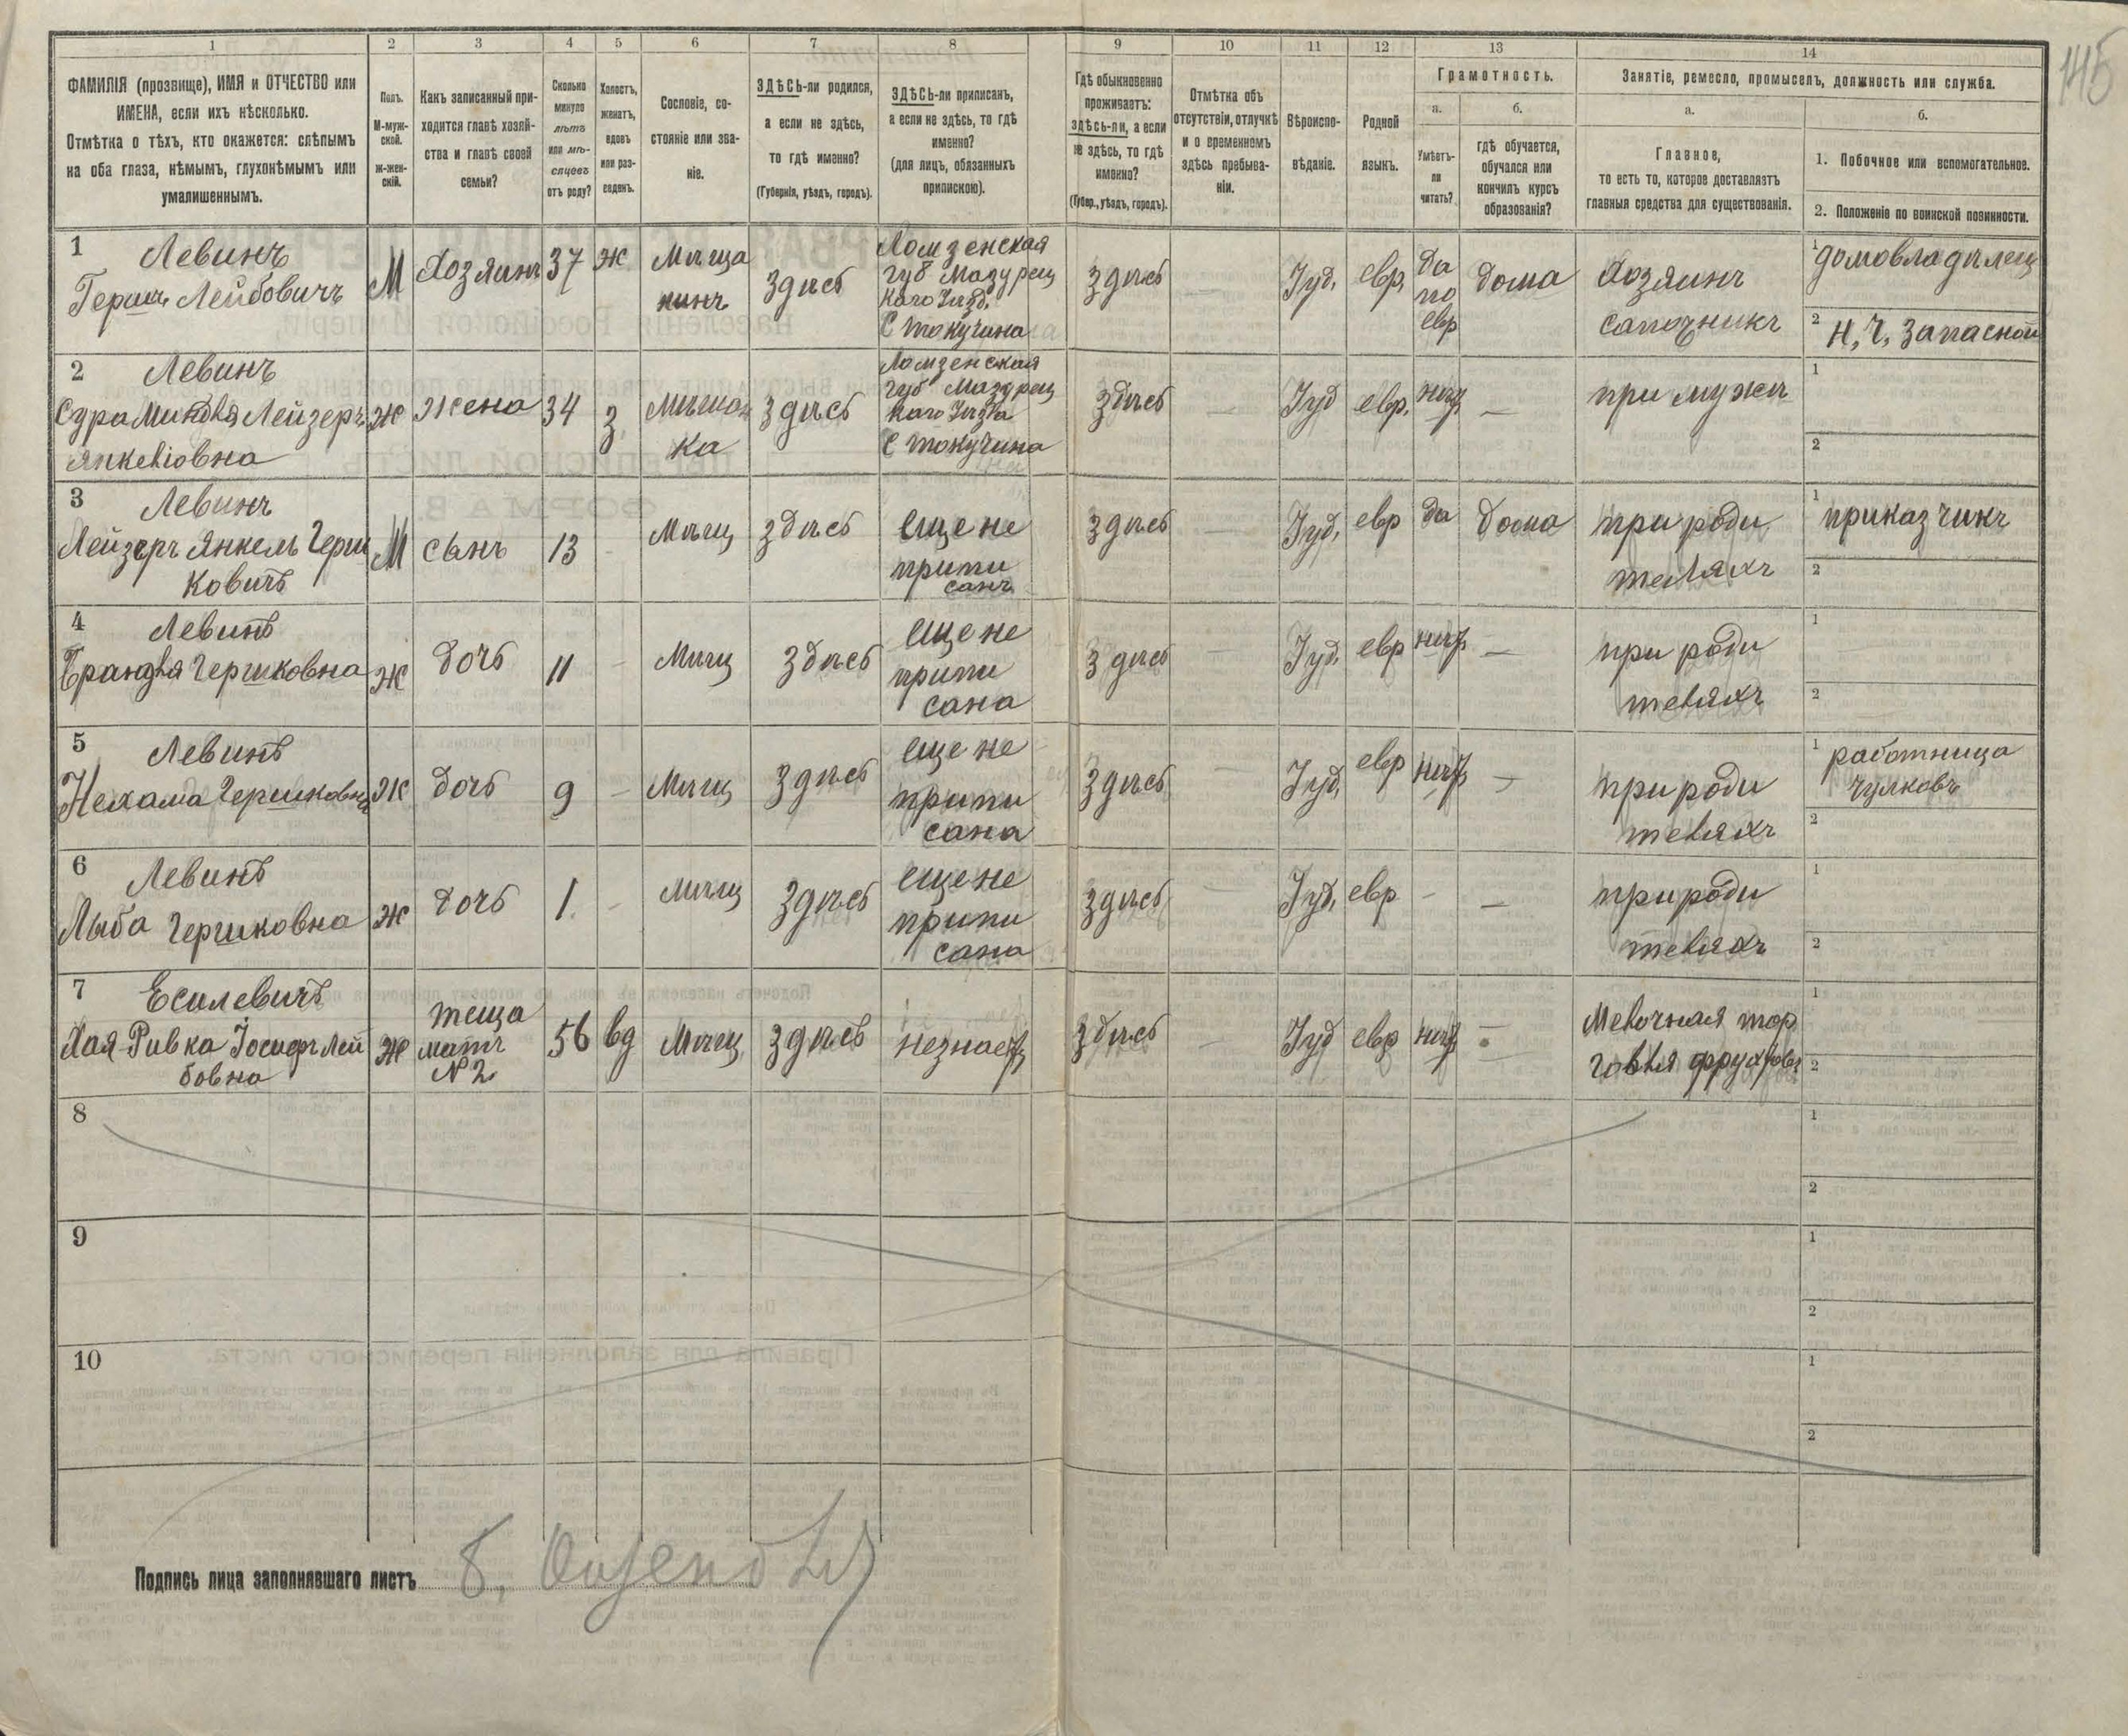 145
1
2
3
4
5
6
7
8
9
10
11
12
13
14
ФАМИЛІЯ (прозвище), ИМЯ и ОТЧЕСТВО или
ИМЕНА, если ихъ нѣсколько.
Отмѣтка о тѣхъ, кто окажется: слѣпымъ
на оба глаза, нѣмымъ, глухонѣмымъ или
умалишеннымъ.
Полъ.
М-муж-
ской.
ж-жен-
скій.
Какъ записанный при-
ходится главѣ хозяй-
ства и главѣ своей
семьи?
Сколько
минуло
лѣтъ
или мѣ-
сяцевъ
отъ роду?
Холостъ,
женатъ,
вдовъ
или раз-
веденъ.
Сословіе, со-
стояніе или зва-
ніе.
ЗДѢСЬ-ли родился,
а если не здѣсь,
то гдѣ именно?
(Губернія, уѣздъ, городъ).
ЗДѢСЬ-ли приписанъ,
а если не здѣсь, то гдѣ
именно?
(для лицъ, обязанныхъ
припискою).
Гдѣ обыкновенно
проживаетъ:
здѣсь-ли, а если
не здѣсь, то гдѣ
именно?
(Губер., уѣздъ, городъ).
Отмѣтка объ
отсутствіи, отлучкѣ
и о временномъ
здѣсь пребыва-
ніи.
Вѣроиспо-
вѣданіе.
Родной
языкъ.
Грамотность.
а.
б.
Умѣетъ-
ли
читать?
гдѣ обучается,
обучался или
кончилъ курсъ
образованія?
Занятіе, ремесло, промыселъ, должность или служба.
а.
б.
Главное,
то есть то, которое доставляетъ
главныя средства для существованія.
1. Побочное или вспомогательное.
2. Положеніе по воинской повинности.
1
Левинъ
Гершъ Лейбовичъ
М
Хозяинъ
37
ж
Мѣща
нинъ
здѣсь
Ломзенская
губ Мазурец
каго Уѣзд.
С
здѣсь
—
Іуд.
евр.
да
по
евр
дома
Хозяинъ
сапожникъ
1 домовладѣлец
2 Н, Ч, запасной
2
Левинъ
Сура Лейзеръ
Янкелiовна
ж
жена
34
з
Мѣщан
ка
здѣсь
Ломзенская
губ Мазурец
каго Уѣзда
С
здѣсь
—
Іуд
евр.
нѣт
—
при мужѣ
1
2
3
Левинъ
Лейзеръ Янкель Герш
ковичъ
М
сынъ
13
-
Мѣщ
здѣсь
еще не
припи
санъ
здѣсь
—
Іуд.
евр
да
дома
при роди
теляхъ
1 приказчикъ
2
4
Левинъ
Брандля Гершковна
ж
дочь
11
-
Мѣщ
здѣсь
еще не
припи
сана
здѣсь
—
Іуд.
евр
нѣт
—
при роди
теляхъ
1
2
5
Левинъ
Нехама Гершковна
ж
дочь
9
-
Мѣщ
здѣсь
еще не
припи
сана
здѣсь
—
Іуд.
евр
нѣт
—
при роди
теляхъ
1 работница
чулковъ
2
6
Левинъ
Лыба Гершковна
ж
дочь
1
-
мѣщ
здѣсь
еще не
припи
сана
здѣсь
—
Іуд.
евр
-
—
при роди
теляхъ
1
2
7
Есилевичъ
Хая-Ривка Іосифъ Лей
бовна
ж
теща
мать
№ 2
56
вд
Мѣщ
здѣсь
незнает
здѣсь
—
Іуд
евр
нѣт
—
Мелочная тор
говля
1
2
8
1
2
9
1
2
10
1
2
Подпись лица заполнявшаго листъ